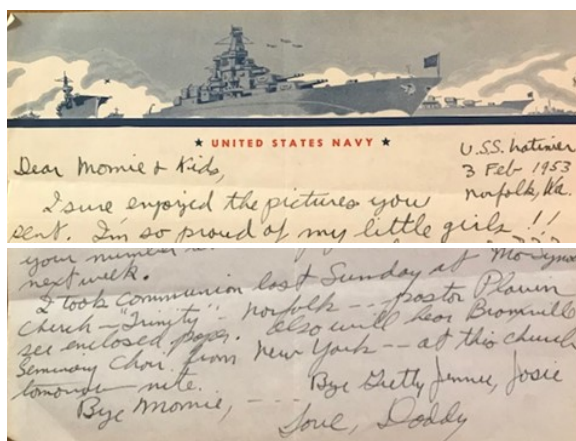 ★ UNITED STATES NAVY ★
U.S.S. Latimer
3 Feb 1953
Norfolk, Va.
Dear Momie & Kids,
I sure enjoyed the pictures you
sent. I'm so proud of my little girls !!
your number
next week.
I took communion last Sunday at
Church – "Trinity" Norfolk -- pastor Plavin
see enclosed paper. also will hear Bronxville
Seminary Choir from New York -- at this church
nite.
Bye Momie, - - - Bye Gretty Jennie, Josie
Love, Daddy